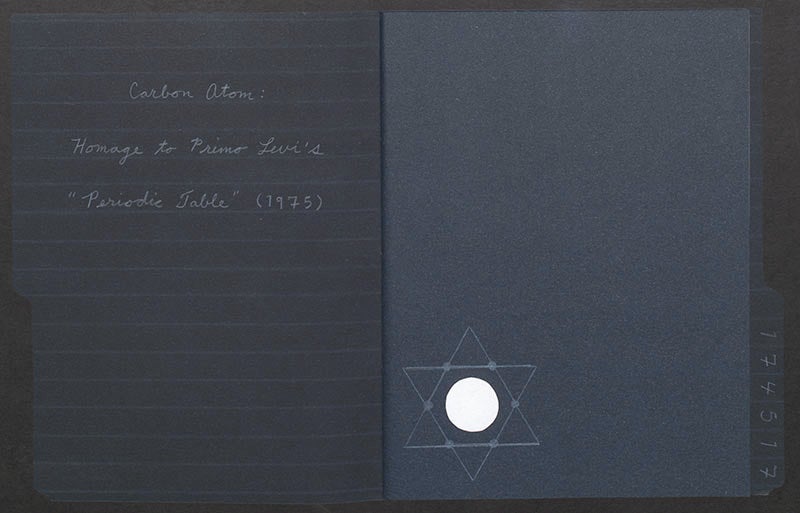 Carbon Atom:
Homage to Primo Levi's
"Periodic Table" (1975)
174517